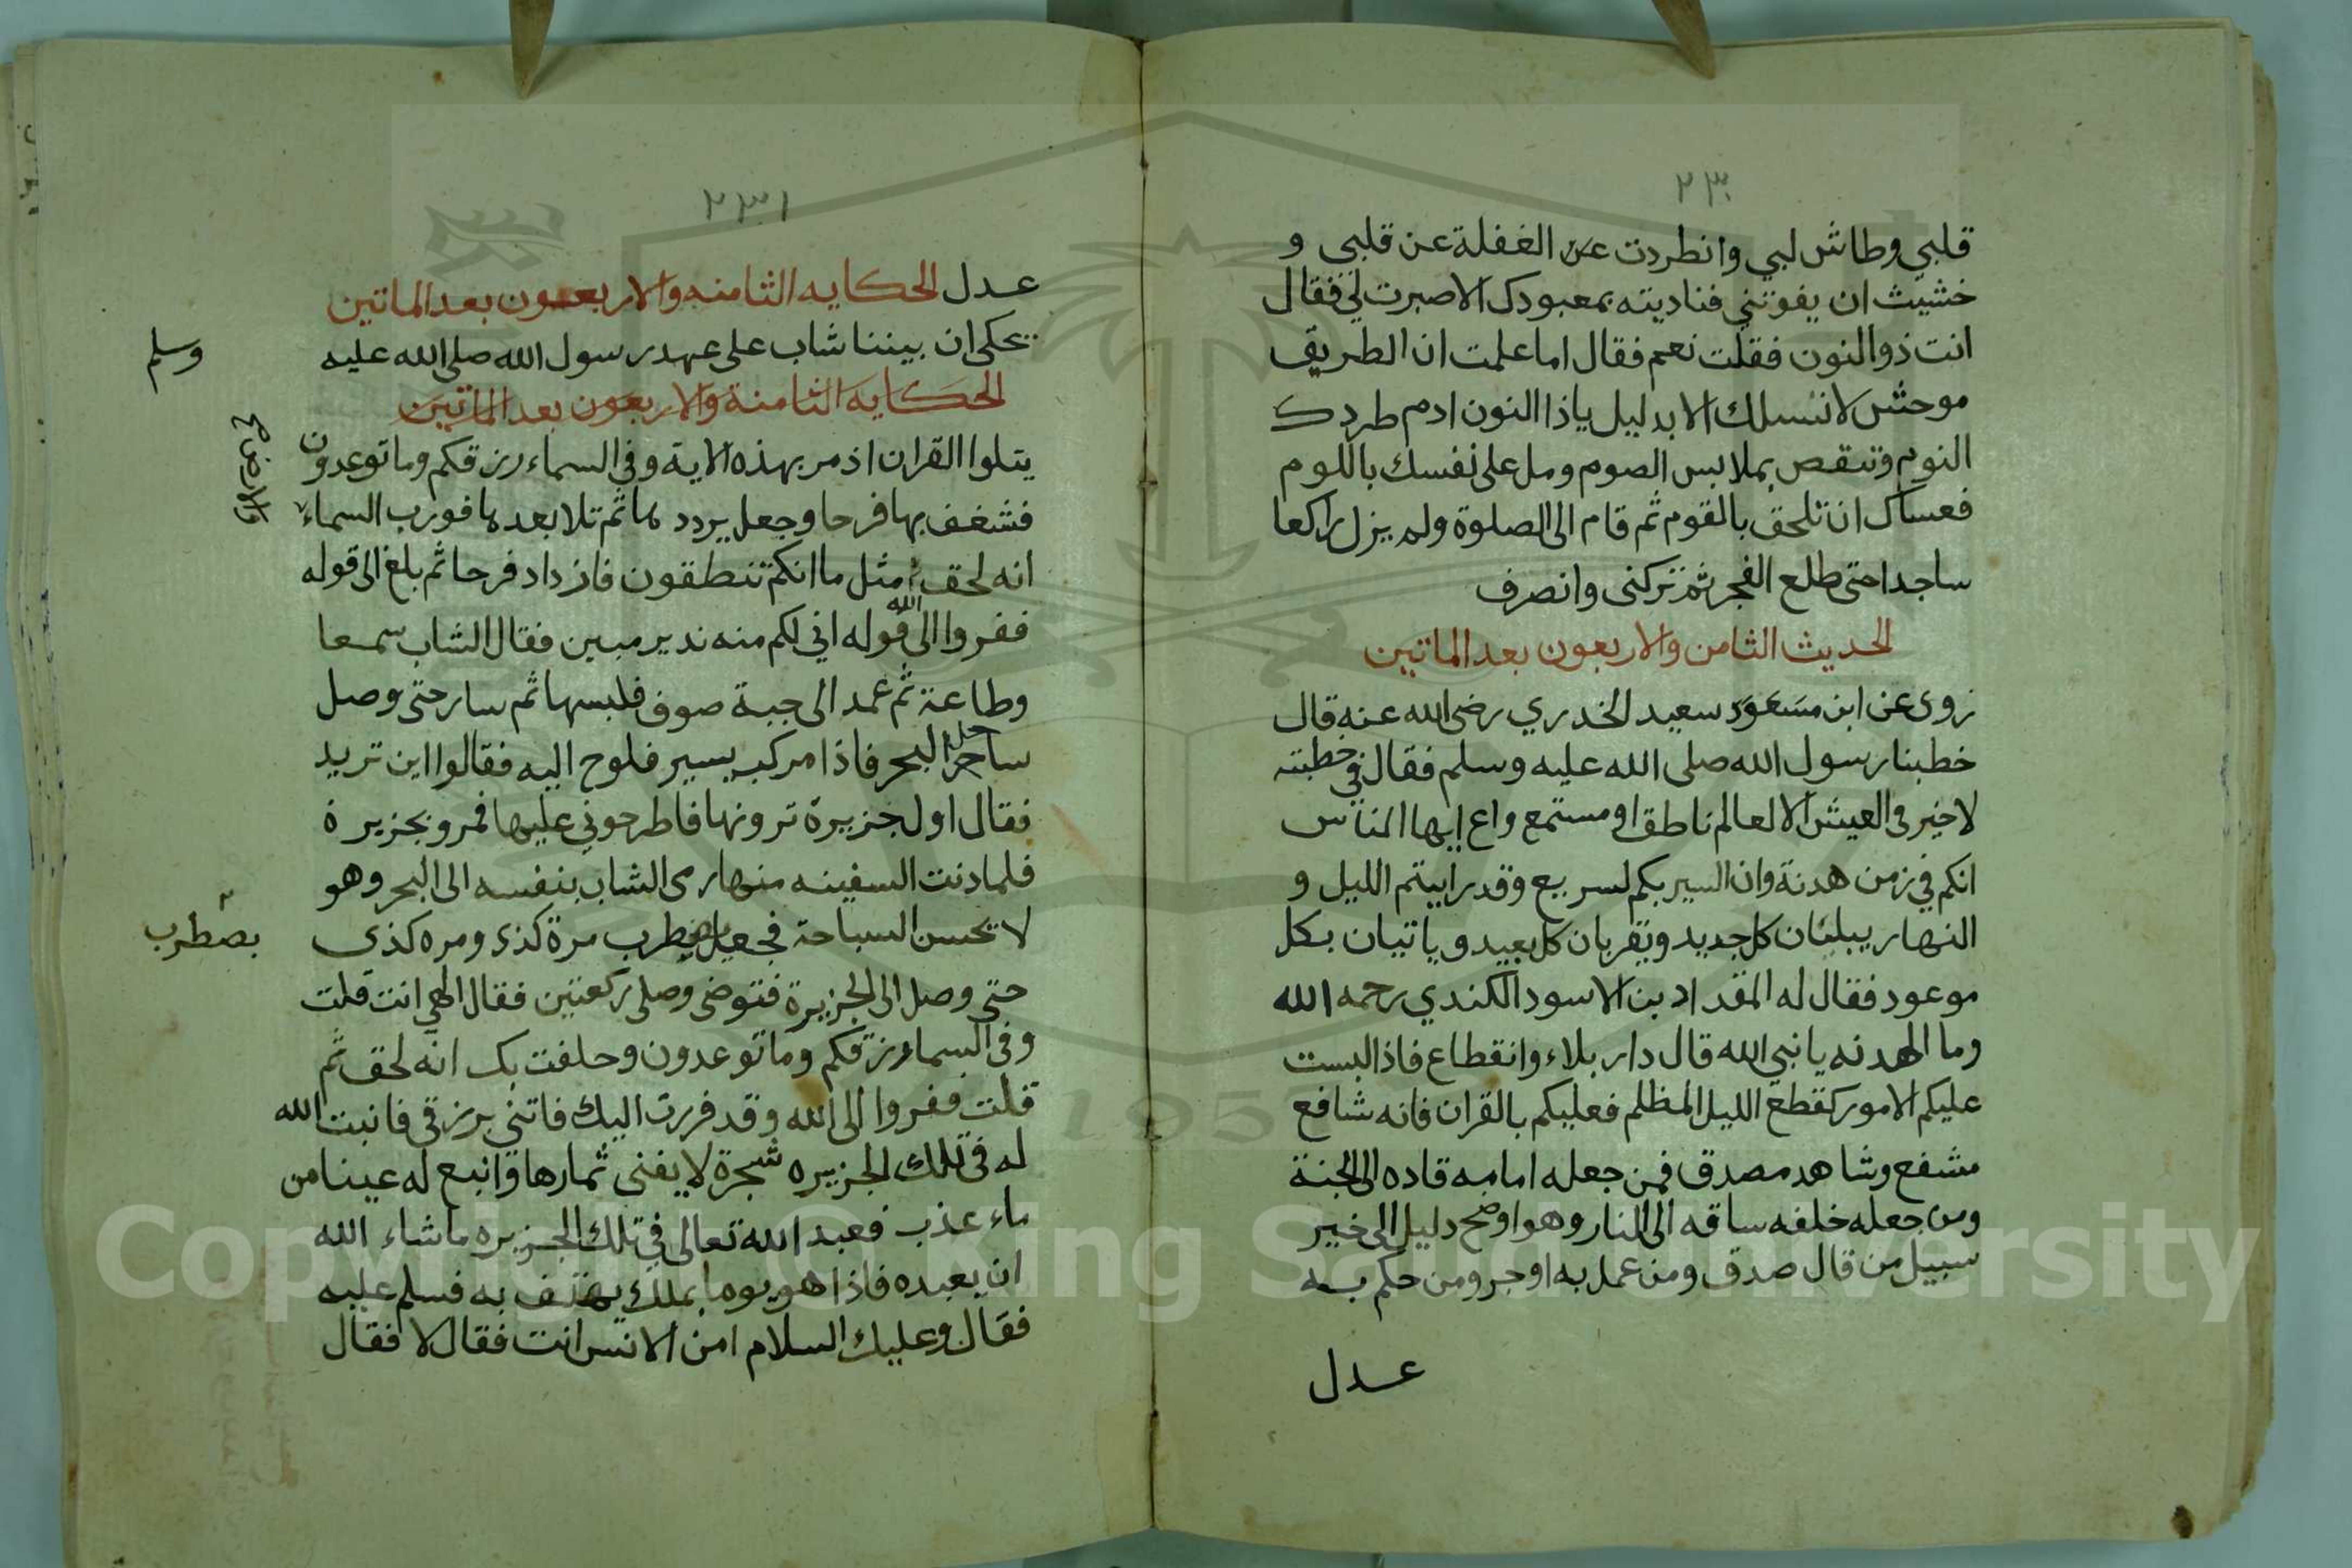 ٢٣٠
قلبي وطاش لبي وانطردت عن الغفلة عن قلبى و
خشيت ان يفوتني فناديته بمعبودك الاصبرت لي فقال
انت ذوالنون فقلت نعم فقال اما علمت ان الطريق
موحش لا نسلك الا بدليل ياذا النون ادم طردك
النوم وتقمص بملابس الصوم ومل على نفسك باللوم
فعساك ان تلحق بالقوم ثم قام الى الصلوة ولم يزل راكعا
ساجدا حتى طلع الفجر ثم تركنى وانصرف
الحديث الثامن والاربعون بعد الماتين
روى عن ابن مسعود سعيد الخدري رضى الله عنه قال
خطبنا رسول الله صلى الله عليه وسلم فقال في خطبته
لا خير فى العيش الا لعالم ناطق او مستمع واع ايها الناس
انكم في زمن هدنة وان السير بكم لسريع وقد رايتم الليل و
النهار يبليان كل جديد ويقربان كل بعيد وياتيان بكل
موعود فقال له المقداد بن الاسود الكندي رحمه الله
وما الهدنه يا نبي الله قال دار بلاء وانقطاع فاذا البست
عليكم الامور كقطع الليل المظلم فعليكم بالقران فانه شافع
مشفع وشاهد مصدق فمن جعله امامه قاده الى الجنة
ومن جعله خلفه ساقه الى النار وهو اوضح دليل الى خير
سبيل من قال صدق ومن عمل به اوجر ومن حكم به
عدل
٢٣١
عدل الحكايه الثامنه والاربعون بعد الماتين
يحكى ان بيننا شاب على عهد رسول الله صلى الله عليه
وسلم
الحكايه الثامنة والاربعون بعد الماتين
يتلوا القران اذ مر بهذه الاية وفي السماء رزقكم وما توعدون
فشغف بها فرحا وجعل يرددها ثم تلا بعدها فورب السماء
والارض
انه لحق مثل ما انكم تنطقون فازداد فرحا ثم بلغ الى قوله
ففروا الى الله قوله اني لكم منه نذير مبين فقال الشاب سمعا
وطاعة ثم عمد الى جبة صوف فلبسها ثم سار حتى وصل
ساحل البحر فاذا مركب يسير فلوح اليه فقالوا اين تريد
فقال اول جزيرة ترونها فاطرحوني عليها فمرو بجزيرة
فلما دنت السفينه منها رمى الشاب بنفسه الى البحر وهو
لا يحسن السباحة فجعل يضطرب مرة كذى ومره كذى
يضطرب
حتى وصل الى الجزيرة فتوضى وصلى ركعتين فقال الهي انت قلت
وفى السماء رزقكم وما توعدون وحلفت بك انه لحق ثم
قلت ففروا الى الله وقد فررت اليك فاتني برزقى فانبت الله
له فى تلك الجزيره شجرة لا يفنى ثمارها وانبع له عينا من
ماء عذب فعبد الله تعالى في تلك الجزيره ما شاء الله
ان يعبده فاذا هو يوما بملك يهتف به فسلم عليه
فقال وعليك السلام امن الانس انت فقال لا فقال
Copyright © King Saud University
195